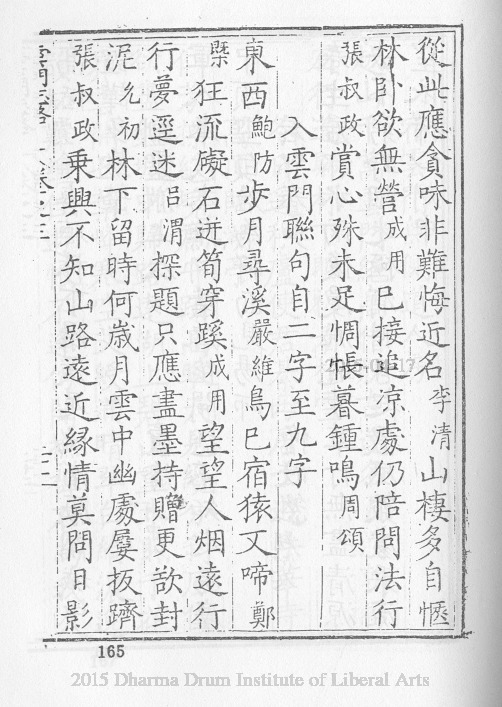 從此應貪味非難悔近名李清山棲多自愜
林卧欲無營成用已接追涼處仍陪問法行
張叔政賞心殊未足惆悵暮鍾鳴周頌
入雲門聯句自二字至九字
東西鮑防步月尋溪嚴維鳥已宿猿又啼鄭
槩狂流礙石迸筍穿蹊成用望望人烟遠行
行夢逕迷呂渭探題只應盡墨持贈更欲封
泥允初林下留時何歲月雲中幽處屢扳躋
張叔政乘興不知山路遠近緣情莫問日影
雲門志略 卷之三
165
2015 Dharma Drum Institute of Liberal Arts